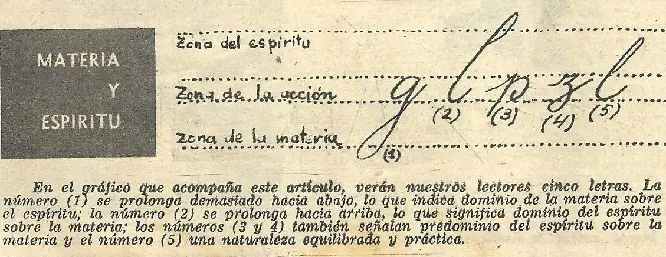 MATERIA
Y
ESPIRITU
Zona del espiritu
Zona de la acción
Zona de la materia
g l p z l
(1) (2) (3) (4) (5)
En el gráfico que acompaña este artículo, verán nuestros lectores cinco letras. La
número (1) se prolonga demasiado hacia abajo, lo que indica dominio de la materia sobre
el espíritu; la número (2) se prolonga hacia arriba, lo que significa dominio del espíritu
sobre la materia; los números (3 y 4) también señalan predominio del espíritu sobre la
materia y el número (5) una naturaleza equilibrada y práctica.